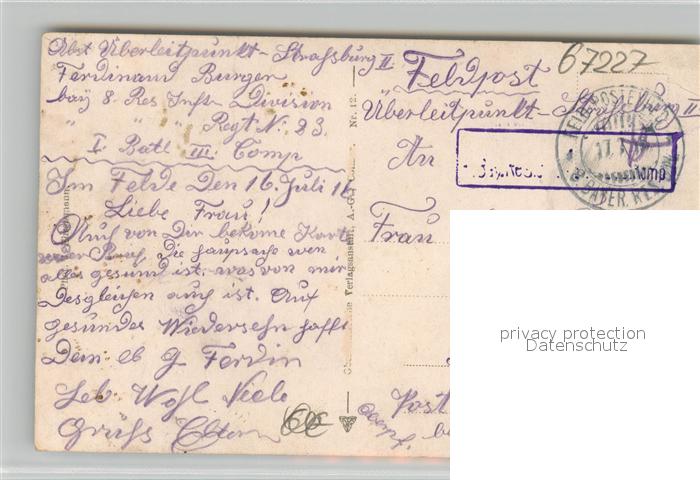 Abst Überleitpunkt - Strassburg II.
Ferdinand Burger
bay 8. Res Inft. Division
" " " Regt No: 23.
I. Batl III. Comp
Im Felde Den 16. Juli 16
Liebe Frau!
Auch von Dir bekome Karte
Die Haupsache wen
alles gesund ist. was von mir
Desgleichen auch ist. Auf
gesundes Wiedersehn hofft
Dein Ferdin
Leb Wohl Viele
Grüss Eltern
6€
Nr. 12.
Verlagsanstalt, A.-G.
67227
Feldpost
Überleitpunkt - Strassburg II
An
FELD-POSTEXP.
17.7.
BAYER. RES.
Comp
Frau
Post
privacy protection
Datenschutz